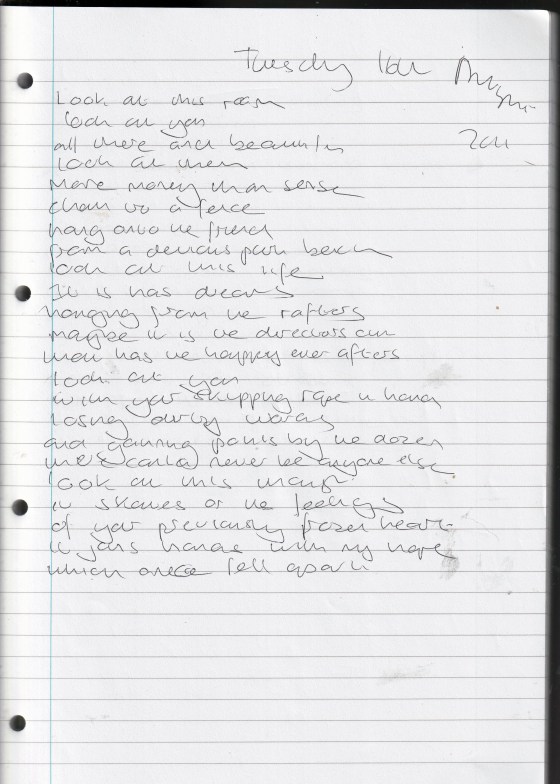 Tuesday 16th August
2011
Look at this room
look at you
all there and beautiful
look at them
More money than sense
chain to a fence
hang onto the friend
from a devious park bench
look at this life
It is has dreams
hanging from the rafters
maybe it is the directors cut
that has the happy ever afters
look at you
with your skipping rope in hand
losing daring words
and gaining points by the dozen
there could never be anyone else
look at this
it skates on the feelings
of your previously frozen heart
it joins hands with my hope
which once fell apart